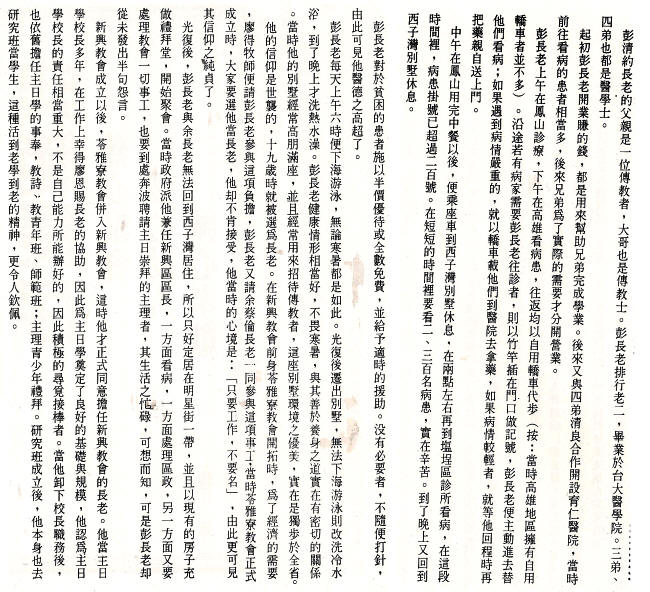 彭清約長老的父親是一位傳教者，大哥也是傳教士。彭長老排行老二，畢業於台大醫學院。三弟、
四弟也都是醫學士。
起初彭長老開業賺的錢，都是用來幫助兄弟完成學業。後來又與四弟清良合作開設育仁醫院，當時
前往看病的患者相當多，後來兄弟爲了實際的需要才分開營業。
彭長老上午在鳳山診療，下午在高雄看病患，往返均以自用轎車代步（按：當時高雄地區擁有自用
轎車者並不多）。沿途若有病家需要彭長老往診者，則以竹竿插在門口做記號，彭長老便主動進去替
他們看病；如果遇到病情嚴重的，就以轎車載他們到醫院去拿藥，如果病情較輕者，就等他回程時再
把藥親自送上門。
中午在鳳山用完中餐以後，便乘座車到西子灣別墅休息，在兩點左右再到塩埕區診所看病，在這段
時間裡，病患掛號已超過二百號。在短短的時間裡要看二、三百名病患，實在辛苦。到了晚上又回到
西子灣別墅休息。
彭長老對於貧困的患者施以半價優待或全數免費，並給予適時的援助。没有必要者，不隨便打針，
由此可見他醫德之高超了。
彭長老每天上午六時便下海游泳，無論寒暑都是如此。光復後遷出別墅，無法下海游泳則改洗冷水
浴，到了晚上才洗熱水澡。彭長老健康情形相當好，不畏寒暑，與其善於養身之道實在有密切的關係
。當時他的別墅經常高朋滿座，並且經常用來招待傳教者，這座別墅環境之優美，實在是獨步於全省。
他的信仰是世襲的，十九歲時就被選爲長老。在新興教會前身苓雅寮教會開拓時，爲了經濟的需要
，廖得牧師便請彭長老參與這項負擔，彭長老又請余蔡倫長老一同參與這項事工，當時苓雅寮教會正式
成立時，大家要選他當長老，他却不肯接受，他當時的心境是：「只要工作，不要名」，由此更可見
其信仰之純貞了。
光復後，彭長老與余長老無法回到西子灣居住，所以只好定居在明星街一帶，並且以現有的房子充
做禮拜堂，開始聚會。當時政府派他兼任新興區區長，一方面看病，一方面處理區政，另一方面又要
處理教會一切事工，也要到處奔波聘請主日崇拜的主理者，其生活之忙碌，可想而知，可是彭長老却
從未發出半句怨言。
新興教會成立以後，苓雅寮教會併入新興教會，這時他才正式同意擔任新興教會的長老。他當主日
學校長多年，在工作上幸得廖恩賜長老的協助，因此爲主日學奠定了良好的基礎與規模，他認爲主日
學校長的責任相當重大，不是自己能力所能辦好的，因此積極的尋覓接棒者。當他卸下校長職務後，
也依舊擔任主日學的事奉，教詩、教青年班、師範班；主理青少年禮拜。研究班成立後，他本身也去
研究班當學生，這種活到老學到老的精神，更令人欽佩。